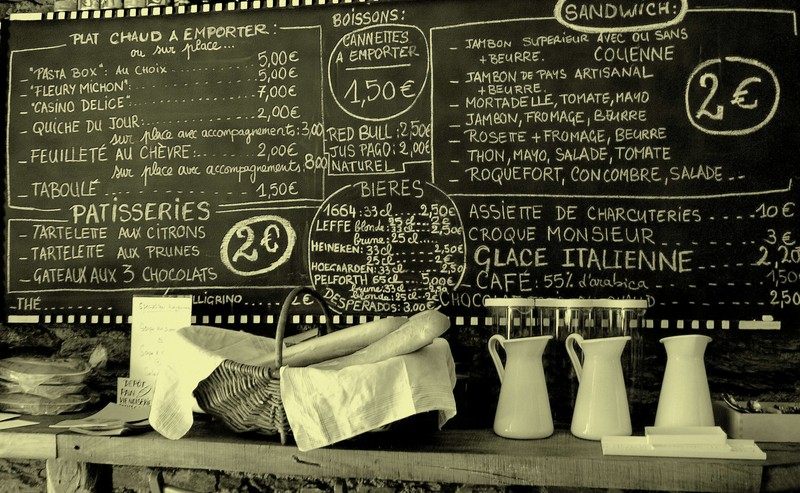 PLAT CHAUD A EMPORTER :
ou sur place...
_ "PASTA BOX": AU CHOIX 5,00€
_ "FLEURY MICHON". 5,00€
_ "CASINO DELICE". 7,00€
_ QUICHE DU JOUR: 2,00€
sur place avec accompagnements: 3,00
_ FEUILLETÉ AU CHÈVRE: 2,00€
sur place avec accompagnements. 8,00
_ TABOULÉ 1,50€
PATISSERIES
_ TARTELETTE AUX CITRONS
_ TARTELETTE AUX PRUNES
_ GATEAUX AUX 3 CHOCOLATS
2€
THÉ
LLIGRINO 2€
BOISSONS:
CANNETTES
A EMPORTER
1,50€
RED BULL: 2,50€
JUS PAGO: 2,00€
NATUREL
BIERES
1664: 33cl 2,50€
LEFFE blonde: 33cl
brune: 25cl
HEINEKEN: 33cl 2,50€
25cl
HOEGAARDEN: 33cl 2,50€
PELFORTH 65cl 5,00€
brune: 33cl
blonde: 25cl
DESPERADOS: 3,00€
SANDWICH:
_ JAMBON SUPERIEUR AVEC OU SANS
+ BEURRE. COUENNE
_ JAMBON DE PAYS ARTISANAL
+ BEURRE.
_ MORTADELLE, TOMATE, MAYO
_ JAMBON, FROMAGE, BEURRE
_ ROSETTE + FROMAGE, BEURRE
_ THON, MAYO, SALADE, TOMATE
_ ROQUEFORT, CONCOMBRE, SALADE
2€
ASSIETTE DE CHARCUTERIES .... 10€
CROQUE MONSIEUR 3€
GLACE ITALIENNE 2,20
CAFÉ: 55% d'arabica 1,50
CHOCOLAT CHAUD 2,50
DEPÔT
PAIN
VIENOISERIE